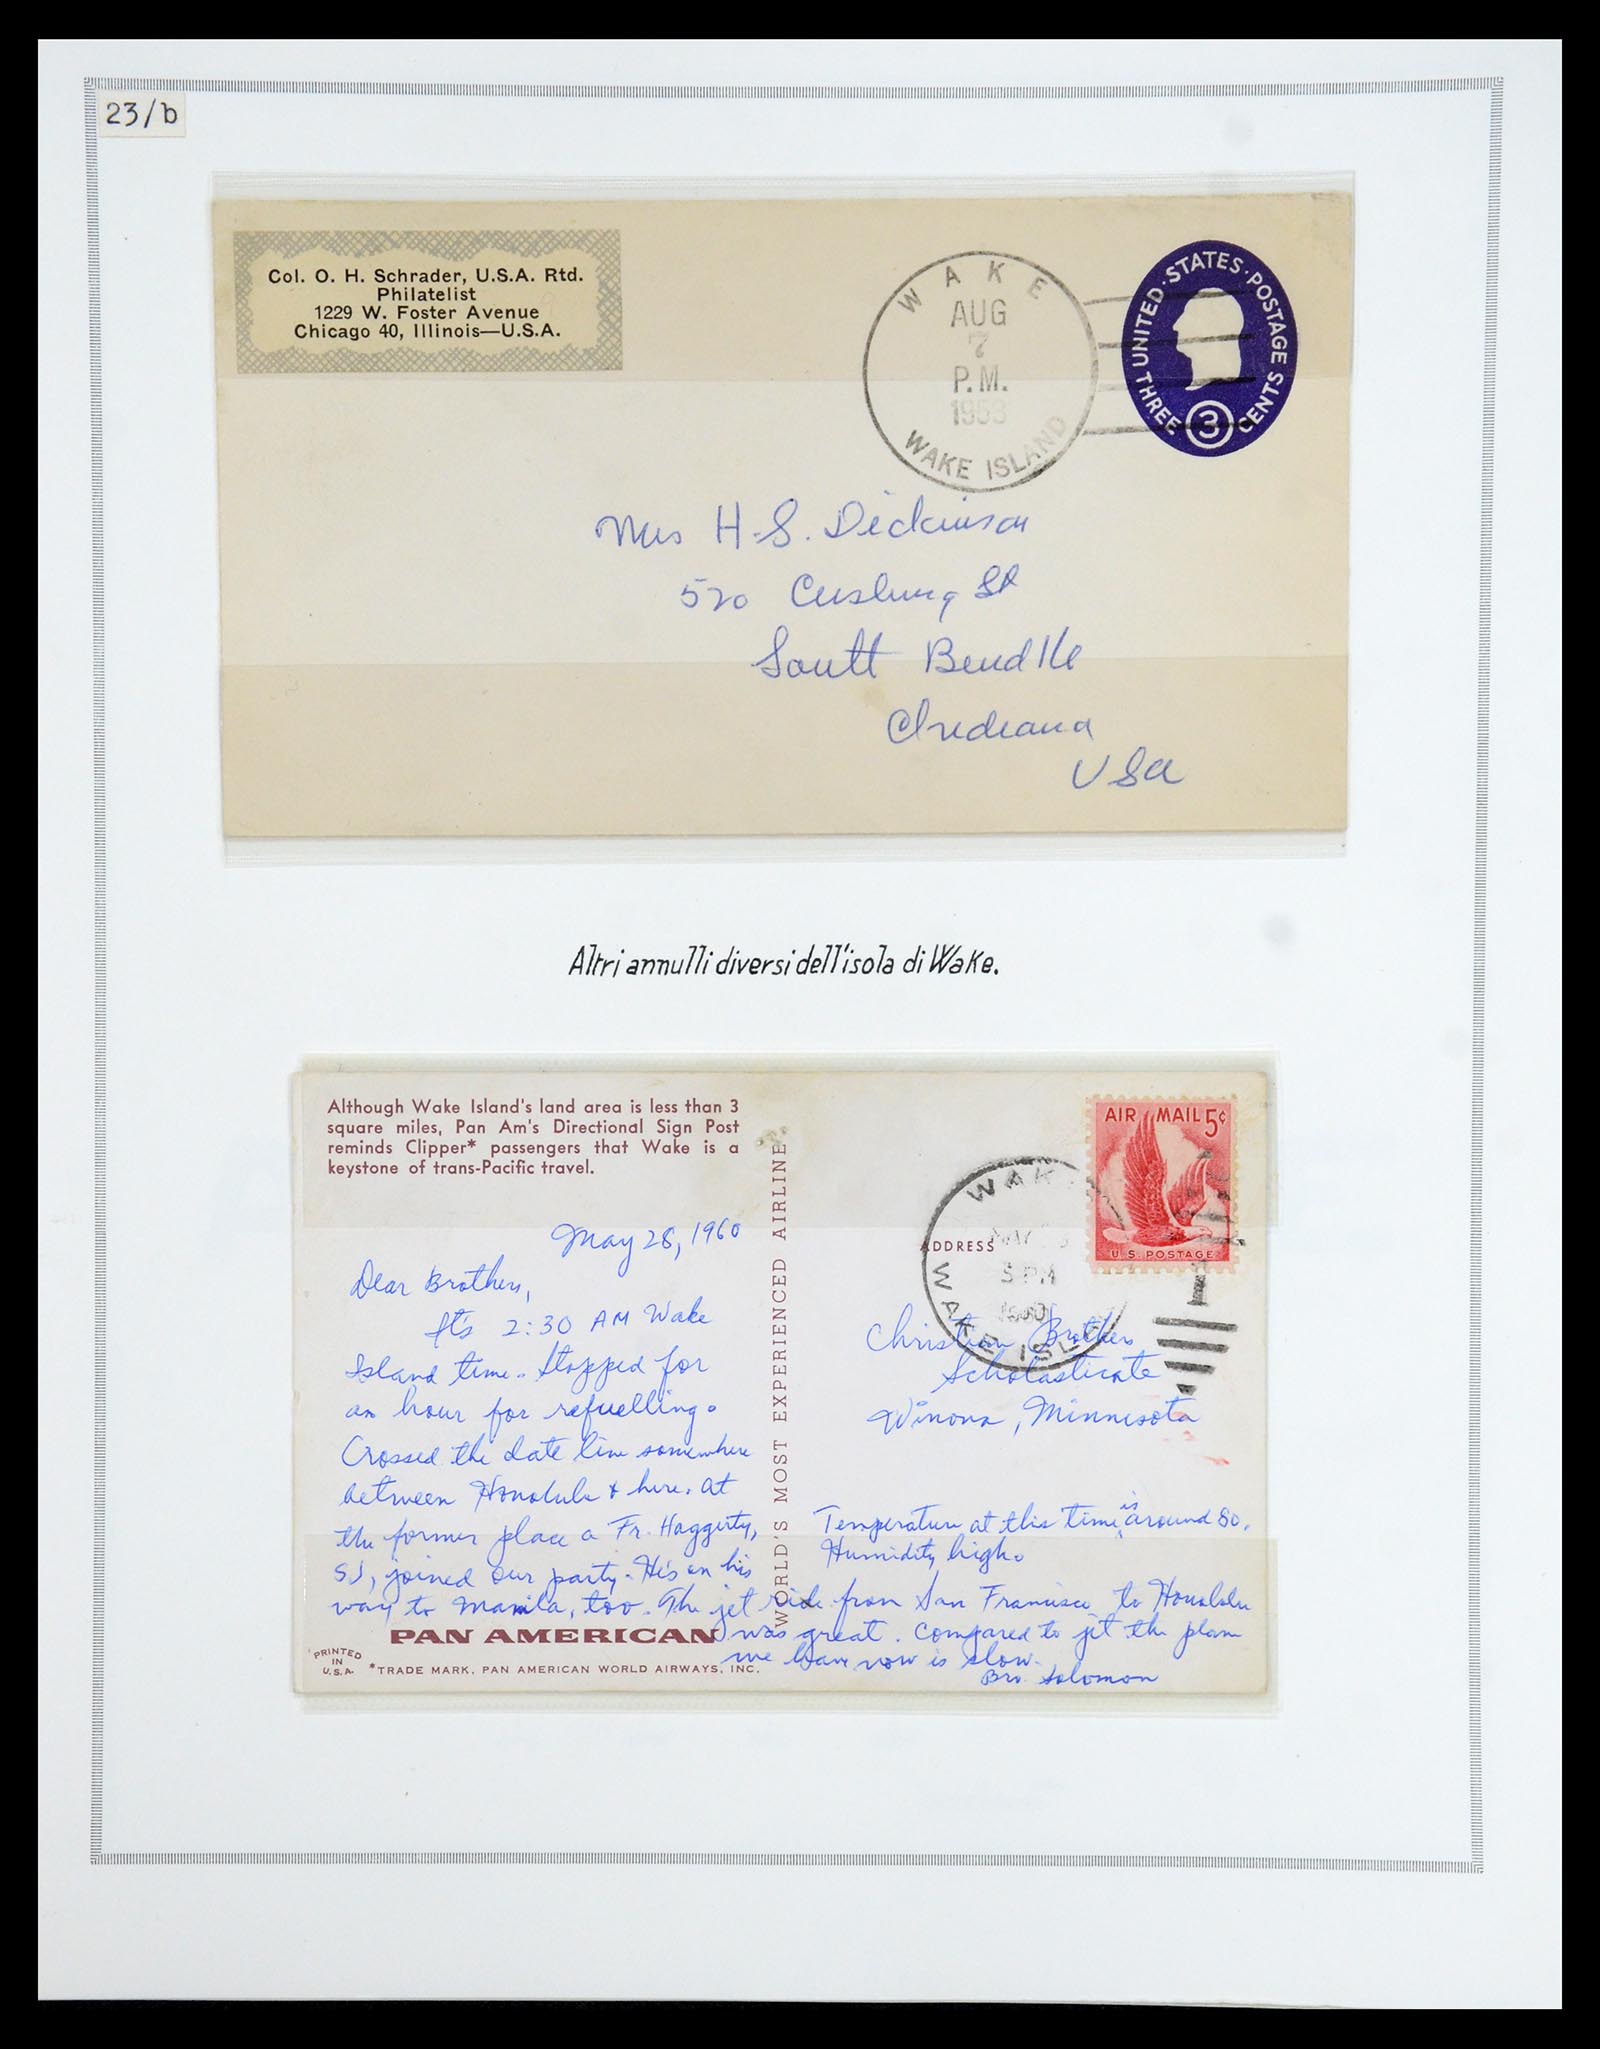 23/b
Col. O. H. Schrader, U.S.A. Rtd.
Philatelist
1229 W. Foster Avenue
Chicago 40, Illinois—U.S.A.
WAKE
AUG
7
P.M.
1953
WAKE ISLAND
UNITED·STATES·POSTAGE
THREE 3 CENTS
Mrs H.S. Dickinson
520 Cushing St
South Bend 16
Indiana
USA
Altri annulli diversi dell'isola di Wake.
Although Wake Island's land area is less than 3
square miles, Pan Am's Directional Sign Post
reminds Clipper* passengers that Wake is a
keystone of trans-Pacific travel.
May 28, 1960
Dear Brothers,
It's 2:30 AM Wake
Island time. Stopped for
an hour for refuelling.
Crossed the date line somewhere
between Honolulu & here. At
the former place a Fr. Haggerty,
SJ, joined our party. He's on his
way to Manila, too. The jet ride from San Francisco to Honolulu
was great. Compared to jet the plane
we have now is slow.
Bro. Solomon
Temperature at this time is around 80.
Humidity high.
PAN AMERICAN
PRINTED
IN
U.S.A.
*TRADE MARK, PAN AMERICAN WORLD AIRWAYS, INC.
WORLD'S MOST EXPERIENCED AIRLINE
AIR MAIL 5¢
U.S. POSTAGE
WAK
MAY
3 PM
1960
WAKE ISL
ADDRESS
Christian Brothers
Scholasticate
Winona, Minnesota